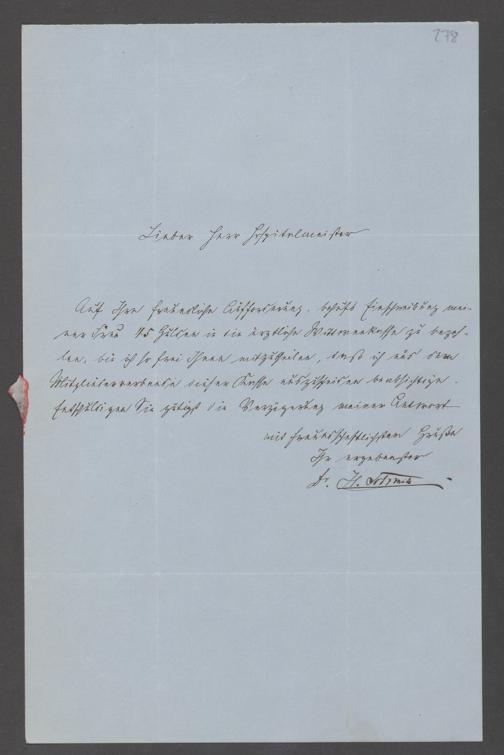 278
Lieber Herr Hospitalmeister
Auf Ihre freundliche Aufforderung, behufs Einschreibung mei-
ner Frau 45 Gulden in die ärztliche Wittwenkasse zu bezah-
len, bin ich so frei Ihnen mitzutheilen, dass ich aus dem
Mitgliederverbande dieser Kasse auszutreten beabsichtige.
Entschuldigen Sie gütigst die Verzögerung meiner Antwort
mit freundschaftlichsten Grüßen
Ihr ergebenster
Dr. H.